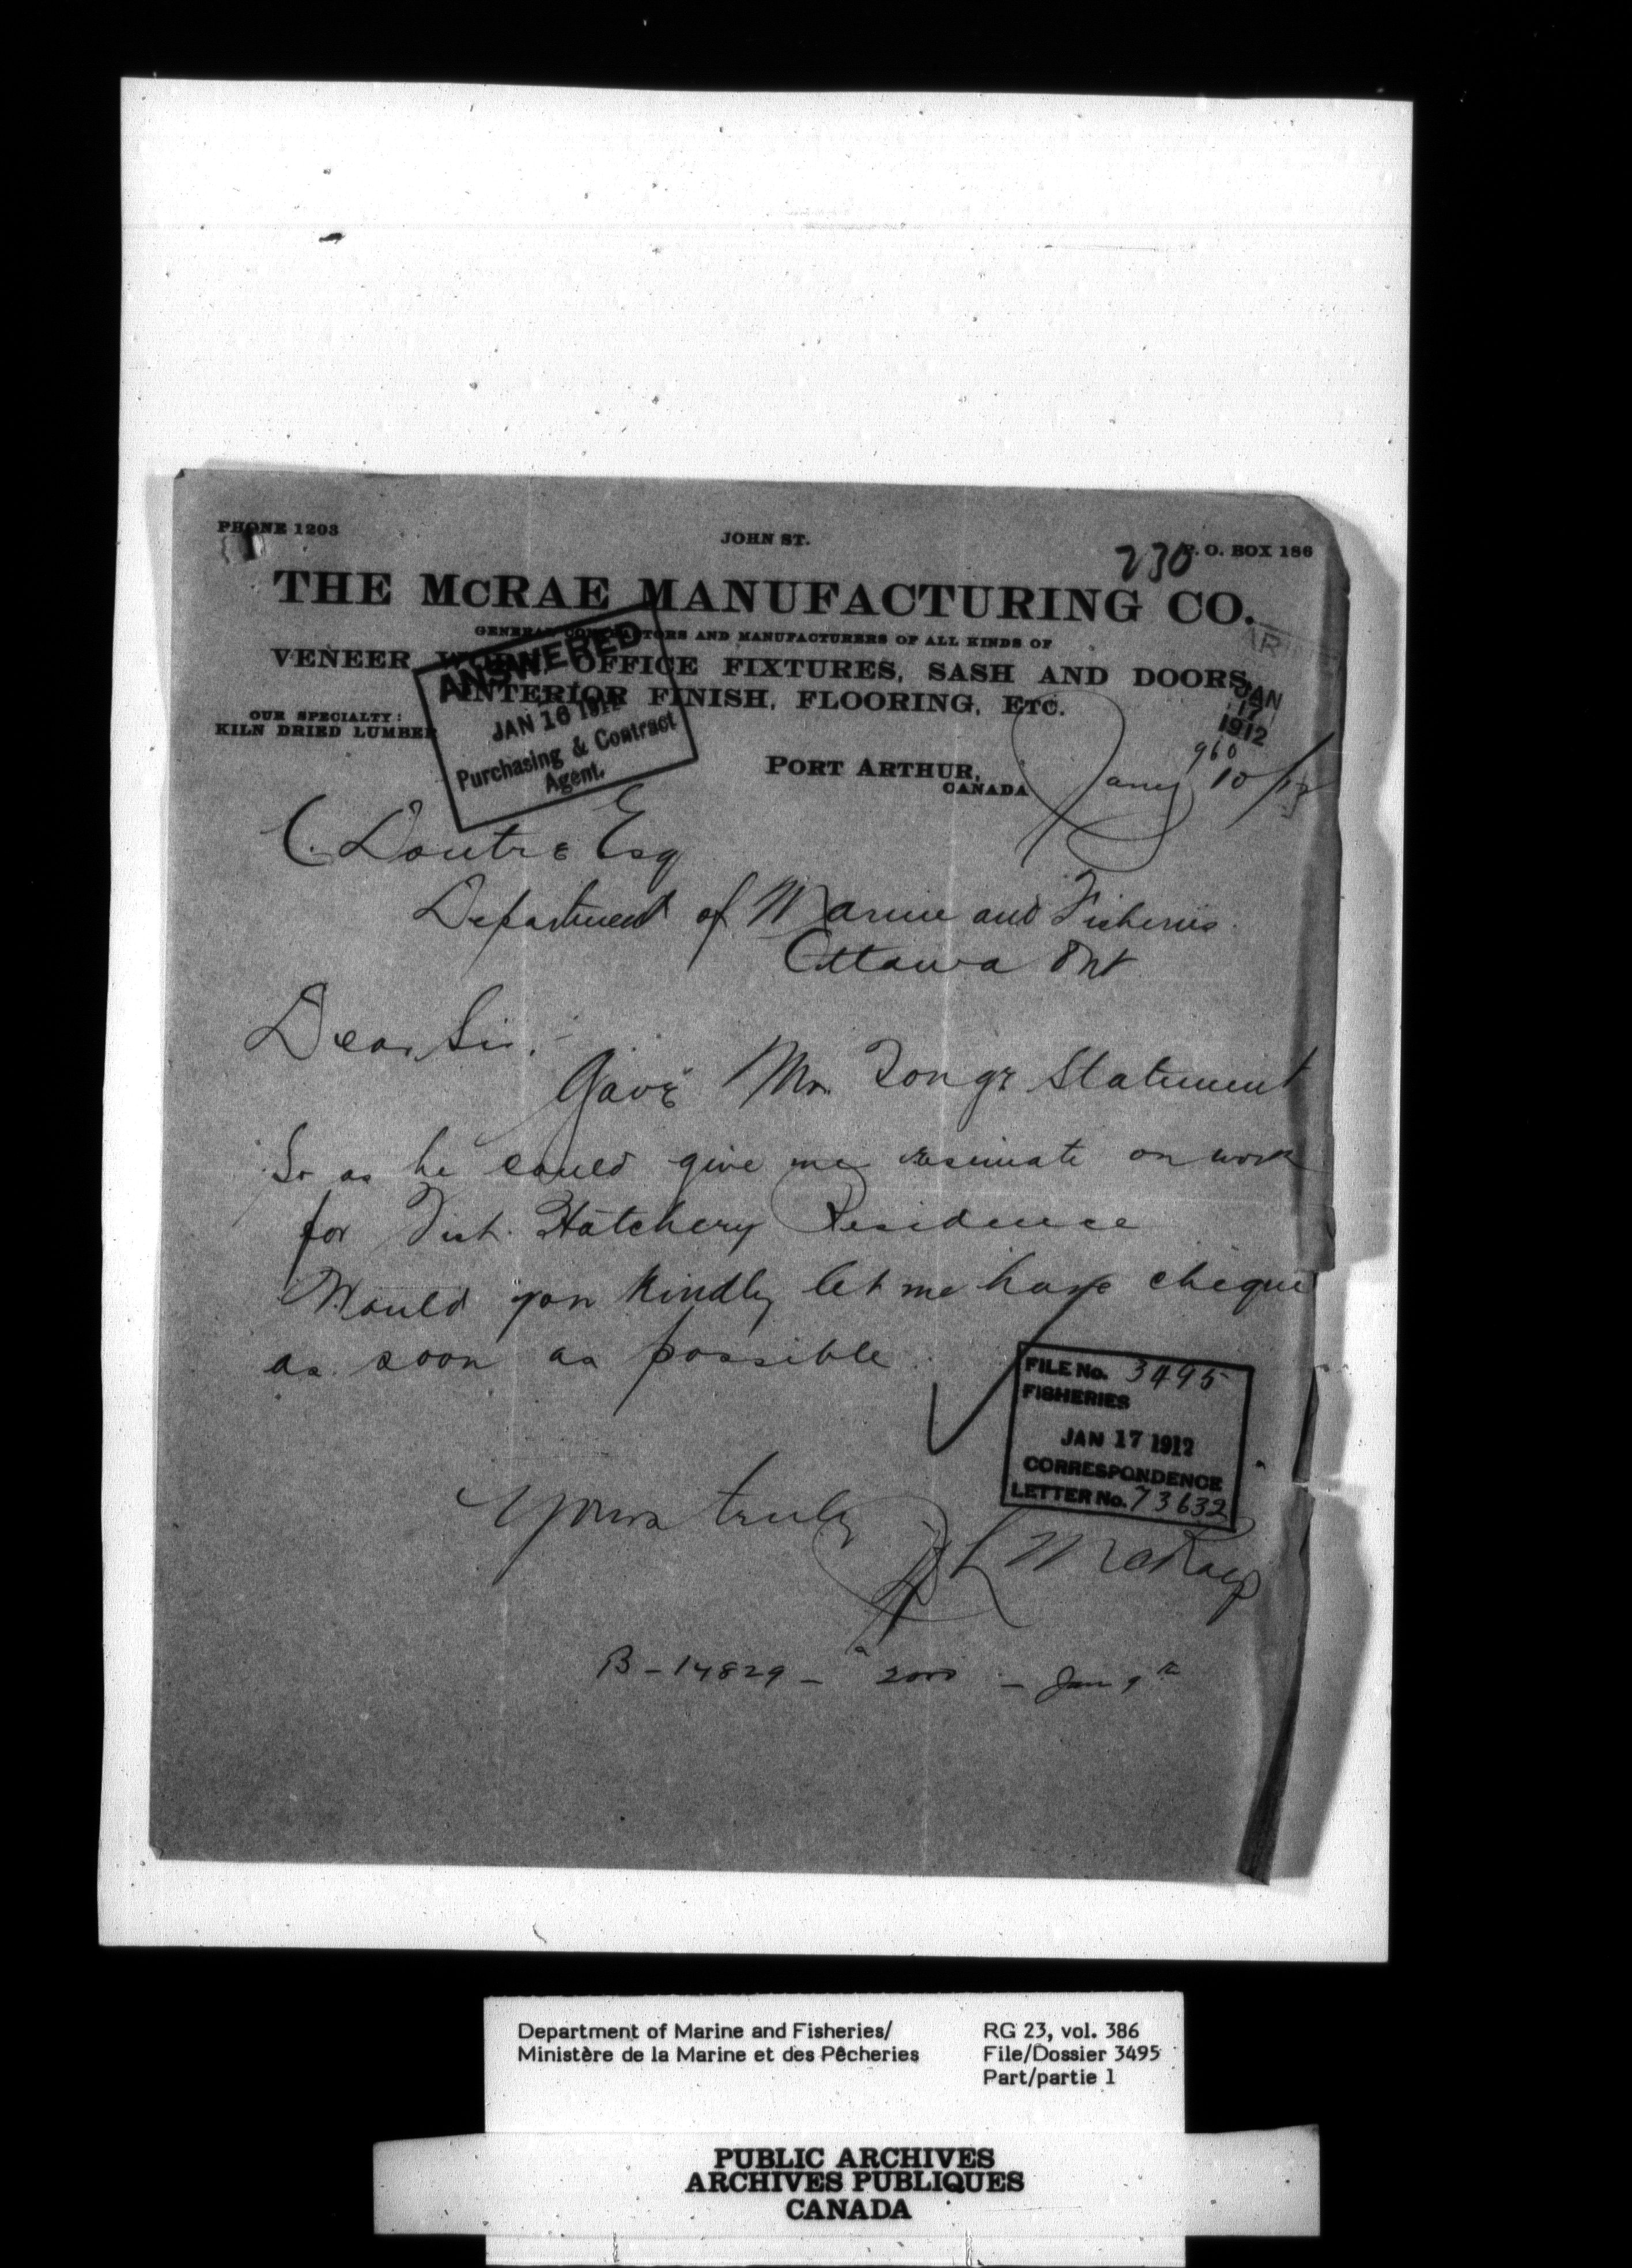 PHONE 1203
JOHN ST.
P. O. BOX 186
230
THE McRAE MANUFACTURING CO.
GENERAL CONTRACTORS AND MANUFACTURERS OF ALL KINDS OF
VENEER WORK, OFFICE FIXTURES, SASH AND DOORS,
INTERIOR FINISH, FLOORING, ETC.
OUR SPECIALTY:
KILN DRIED LUMBER
ANSWERED
JAN 16 1912
Purchasing & Contract
Agent.
JAN
17
1912
960
PORT ARTHUR,
CANADA
Jany 10/12
C. Doutre Esq
Department of Marine and Fisheries.
Ottawa Ont
Dear Sir:-
Gave Mr. Tonge Statement
So as he could give me estimate on work
for Fish. Hatchery Residence
Would you kindly let me have cheque
as soon as possible.
FILE No. 3495
FISHERIES
JAN 17 1912
CORRESPONDENCE
LETTER No. 73632
Yours truly
McRae
B - 14829 - 2000 - Jan 9th
Department of Marine and Fisheries/
Ministère de la Marine et des Pêcheries
RG 23, vol. 386
File/Dossier 3495
Part/partie 1
PUBLIC ARCHIVES
ARCHIVES PUBLIQUES
CANADA